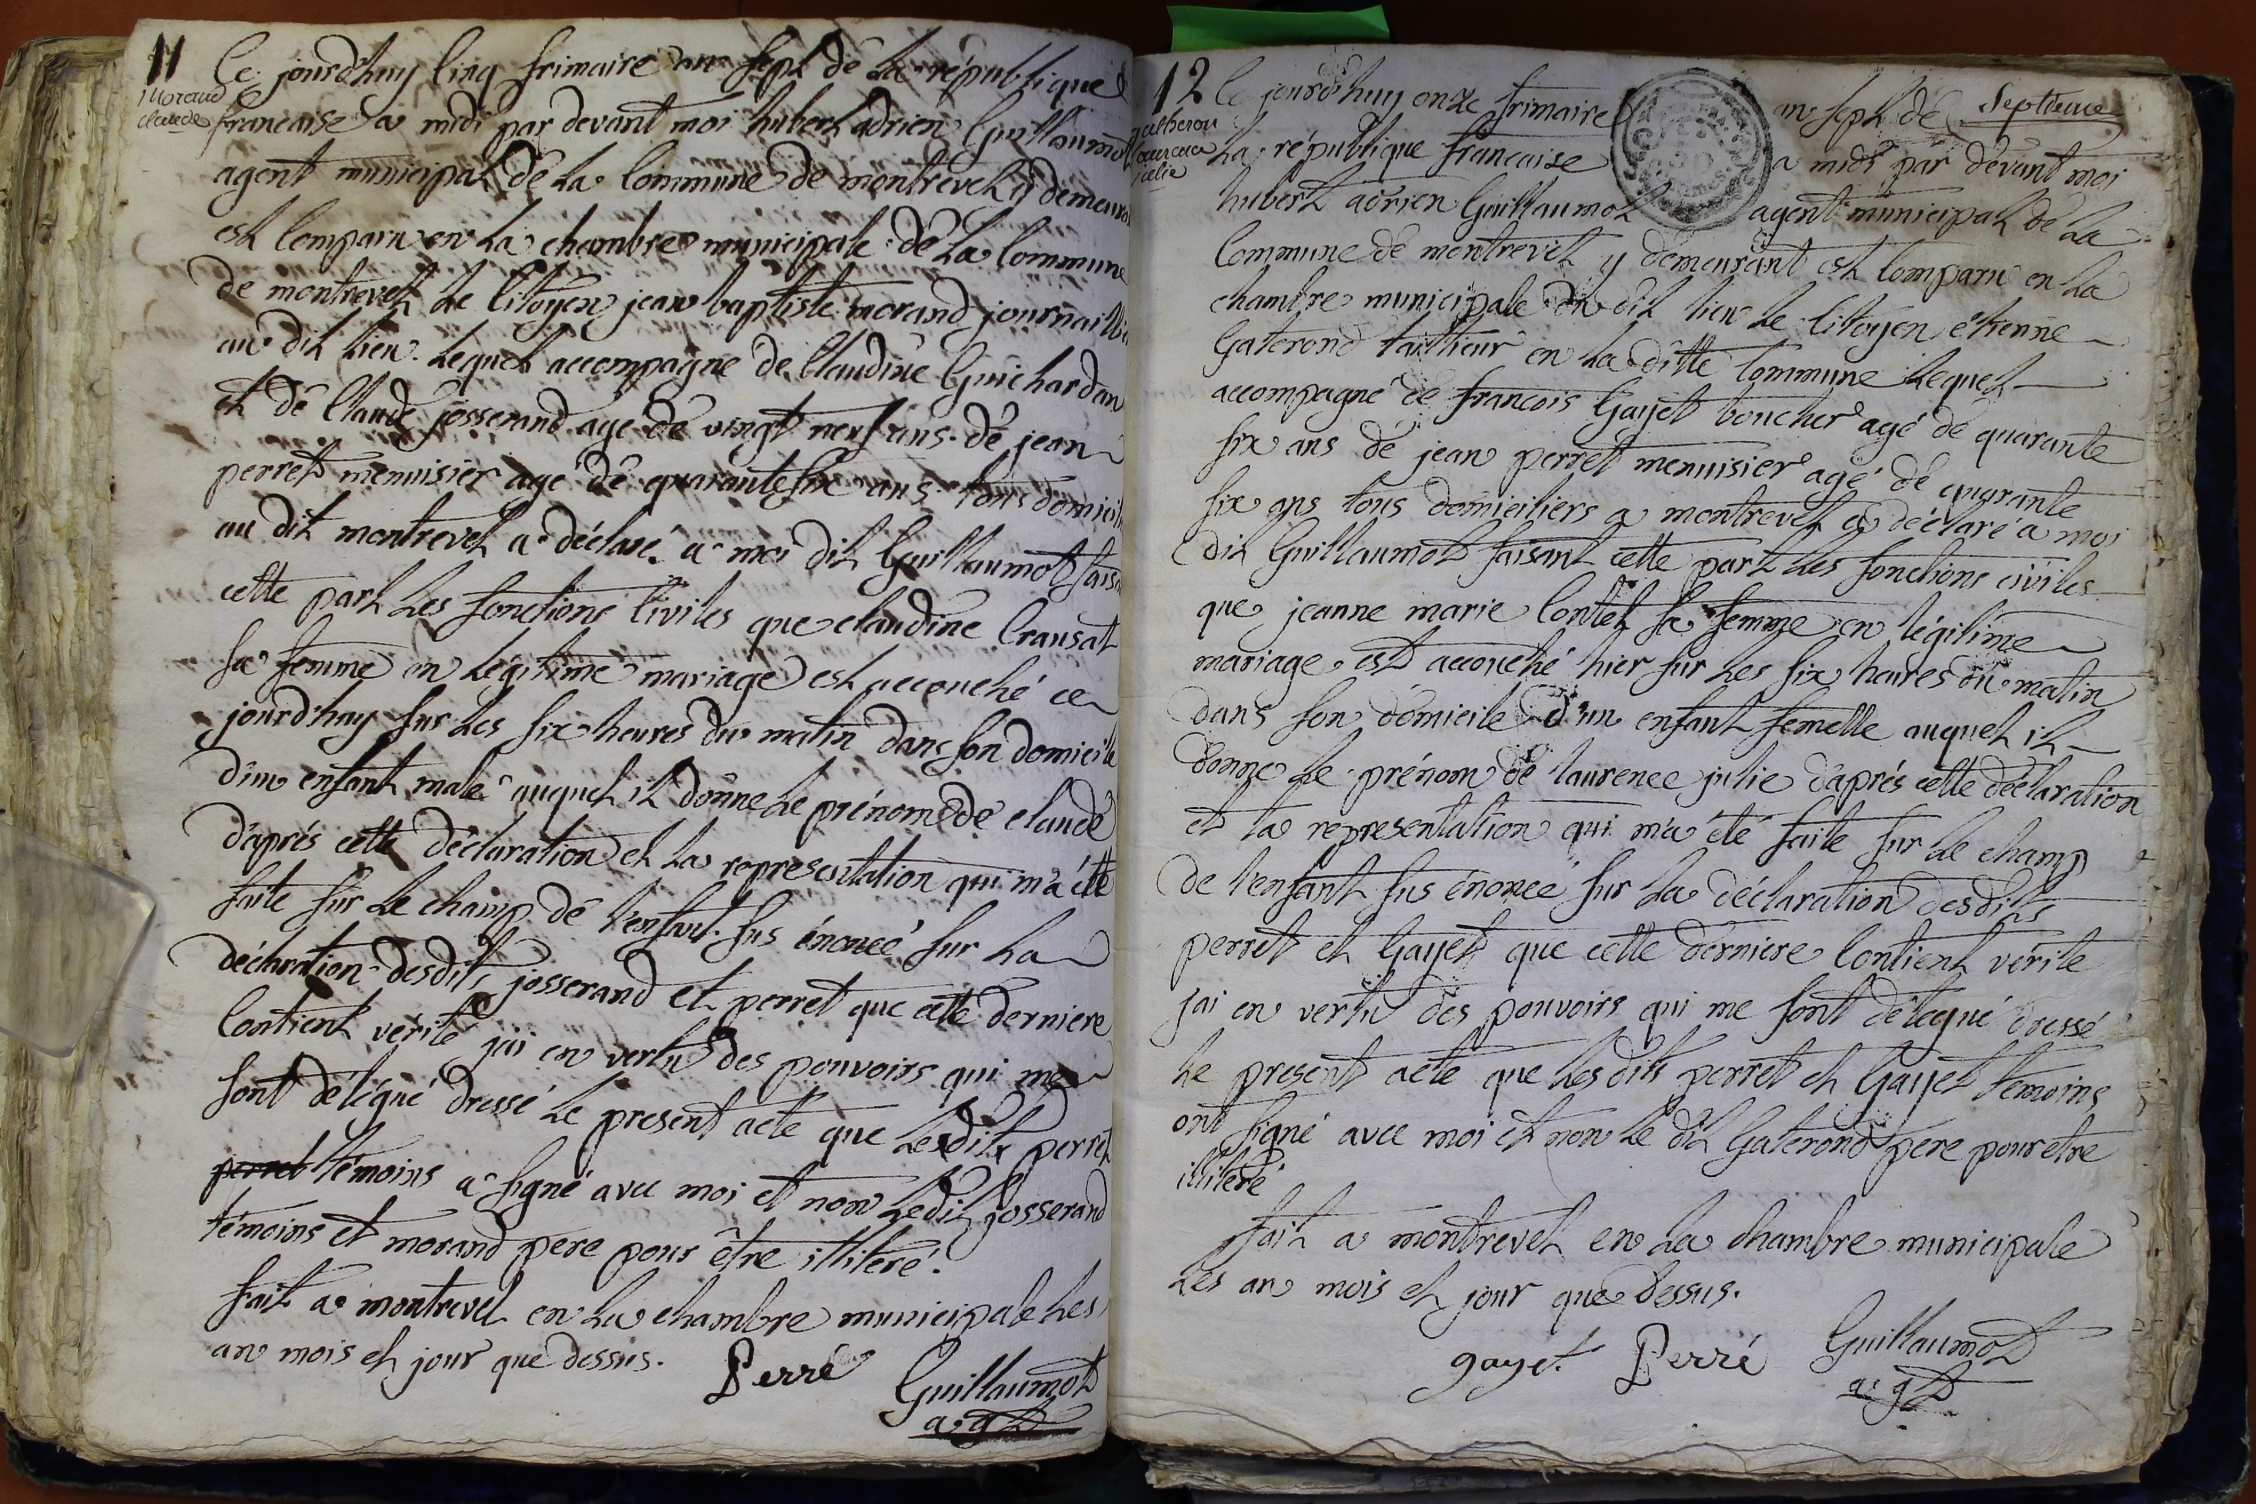 11
Morand
claude
Ce jourd'huy Cinq frimaire an Sept de la république
francaise a midi par devant moi hubert adrien Guillaumot
agent municipal de la Commune de montrevel y demeurant
est Comparu en la chambre municipale de la Commune
de montrevel le Citoyen jean baptiste morand journallier
au dit lieu. lequel accompagne de Claudine Guichardan
et de Claude josserand agé de vingt neuf ans. de jean
perret menuisier agé de quarante six ans. tous domicili
au dit montrevel a déclaré a moi dit Guillaumot faisa
cette part les fonctions Civiles que claudine Cransat
sa femme en legitime mariage est accouché ce
jourd'huy sur les six heures du matin dans son domicile
d'un enfant male auquel il donne le prénom de claude
d'aprés cette déclaration et la representation qui m'a été
faite sur le champ de l'enfant sus énoncé sur la
déclaration desdits josserand et perret que cette derniere
Contient vérité jai en vertu des pouvoirs qui me
sont délégué dressé le present acte que ledit perret
perret témoins a signé avec moi et non ledit josserand
témoins et morand pere pour être illiteré.
fait a montrevel en la chambre municipale les
an mois et jour que dessus.
Perré
Guillaumot
agt
12
julie
Septieme
Ce jourd'huy onze frimaire an sept de
la république francaise a midi par devant moi
hubert adrien Guillaumot agent municipal de la
Commune de montrevel y demeurant est Comparu en la
chambre municipale du dit lieu le Citoyen étienne
Gaterond taillieur en la ditte Commune lequel
accompagné de francois Gayet boucher agé de quarante
six ans de jean perret menuisier agé de quarante
six ans tous domiciliers a montrevel a déclaré a moi
dit Guillaumot faisant cette part les fonctions civiles
que jeanne marie Contet sa femme en légitime
mariage est accouché hier sur les six heures du matin
dans son domicile d'un enfant femelle auquel il
donne le prénom de laurence julie d'aprés cette déclaration
et la representation qui m'a été faite sur le champ
de l'enfant sus énoncé sur la déclaration desdits
perret et Gayet que cette derniere Contient vérité
jai en vertu des pouvoirs qui me sont délégué dressé
le present acte que les dits perret et Gayet témoins
ont signé avec moi et non le dit Gaterond pere pour etre
illiteré
fait a montrevel en la chambre municipale
les an mois et jour que dessus.
gayet. Perré Guillaumot
agt